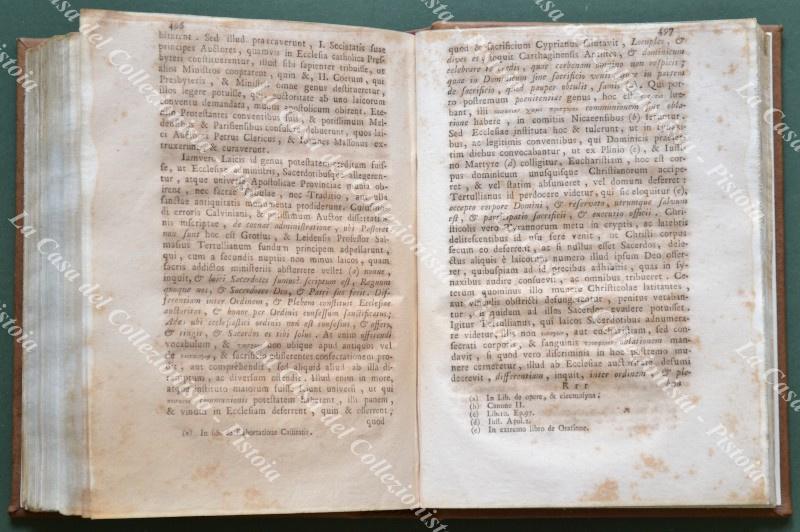 496
bitrarent. Sed illud praecaverunt, I. Societatis suae
principes Auctores, quamvis in Ecclesia catholica Pres-
byteri constituerentur, illud sibi
illos Ministros cooptarent, quin &, II. Coetum, qui
Presbyteris, & Ministris omne genus destitueretur,
illos legere potuisse, qui auctoritate ab uno laicorum
conventu demandata, munia apostolicum obirent.
Protestantes conventibus suis, & potissimum Mel-
densibus & Parisiensibus consulere debuerunt, quos lai-
ci Auctores Petrus Claricus, & Ioannes Massonus ex-
truxerunt, & curaverunt.
Iamvero Laicis id genus potestatem creditam fuis-
se, ut Ecclesiae Ministri, Sacerdotibusque allegeren-
tur, atque universa Apostolicae Provinciae munia obi-
rent, nec sacrae Tabulae, nec Traditio, nec ulla
sanctae antiquitatis monumenta prodiderunt.
di erroris Calviniani, & Auctor dissertatio-
nis inscriptae, de coenae administratione, ubi Pastores
non sunt hoc est Grotius, & Leidensis Professor Sal-
masius Tertullianum fundum principem adpellarunt,
qui, cum a secundis nuptiis non minus laicos, quam
sacris addictos ministeriis absterrere vellet (a) nonne,
inquit, & laici Sacerdotes sumus? scriptum est, Regnum
quoque nos, & Sacerdotes Deo, & Patri suo fecit. Dif-
ferentiam inter Ordinem, & Plebem constituit Ecclesiae
auctoritas, & honor per Ordinis consessum sanctificatus;
Adeo ubi ecclesiastici ordinis non est consessus, & offers,
& tingis, & Sacerdos es tibi solus. At enim offerendi
vocabulum, & non ubique apud antiquos vel
de & sacrificio offerentes consecrationem pro-
bit, aut comprehendit, sed aliquid aliud ab illa di-
sceptum, ac diversum ostendit. Illud enim in more,
atque instituto maiorum fuisse sciunt universi, ut qui
potestatem haberent, illi panem,
& vinum in Ecclesiam deferrent, quin & offerrent;
quod
(a) In lib. de Exhortatione Castitatis.
497
quod & sacrificium Cyprianus nuntiavit, Locuples, &
dives es, inquit Carthaginensis Antistes, & dominicum
celebrare te credis, quae corbonam omnino non respicis;
quae in Dominicum sine sacrificio venis, quae in partem
de sacrificio, quod pauper obtulit, sumis (a)? Qui por-
ro postremum poenitentiae genus, hoc est
obtinerent, illi communionem sine obla-
tione habere, in comitiis Nicaeensibus (b) feruntur.
Sed Ecclesiae instituta hoc & tulerunt, ut in
bus, ac legitimis conventibus, qui Dominicis praeser-
tim diebus convocabantur, ut ex Plinio (c), & Iusti-
no Martyre (d) colligitur, Eucharistiam, hoc est cor-
pus dominicum unusquisque Christianorum accipe-
ret, & vel statim ablumeret, vel domum deferret:
Tertullianus id perdocere videtur, qui sic eloquitur (e),
accepto corpore Domini, & reservato, utrumque salvum
est, & participatio sacrificii, & executio officii. Chri-
sticolis vero Tyrannorum metu in cryptis, ac latebris
delitescentibus id usu sere venit, ut Christi corpus
secum eo deferrent, ac si nullus esset Sacerdos, dele-
ctus aliquis e laicorum numero illud ipsum Deo offer-
ret, quibuspiam ad id precibus adhibitis, quas in sy-
naxibus audire consuevit, ac omnibus tribueret. Ce-
terum quominus illo munere Christicolae latitantes,
aut vinculis obstricti defungerentur, penitus vetaban-
tur, si quidem ad illos Sacerdos evadere potuisset.
Igitur Tertullianus, qui laicos Sacerdotibus adnumera-
re videtur, illis non aut eucharistiam, sed con-
secrati corporis, & sanguinis oblationem man-
davit, si quod vero discriminis in hoc postremo mu-
nere cerneretur, illud ab Ecclesiae auctoritate desumi
decrevit, differentiam, inquit, inter ordinem, & ple-
Rrr
(a) In Lib. de opere, & eleemosyna;
(b) Canone II.
(c) Libero. Ep. 97.
(d) Iust. Apol. 2.
(e) In extremo libro de Oratione.
La Casa del Collezionista - Pistoia